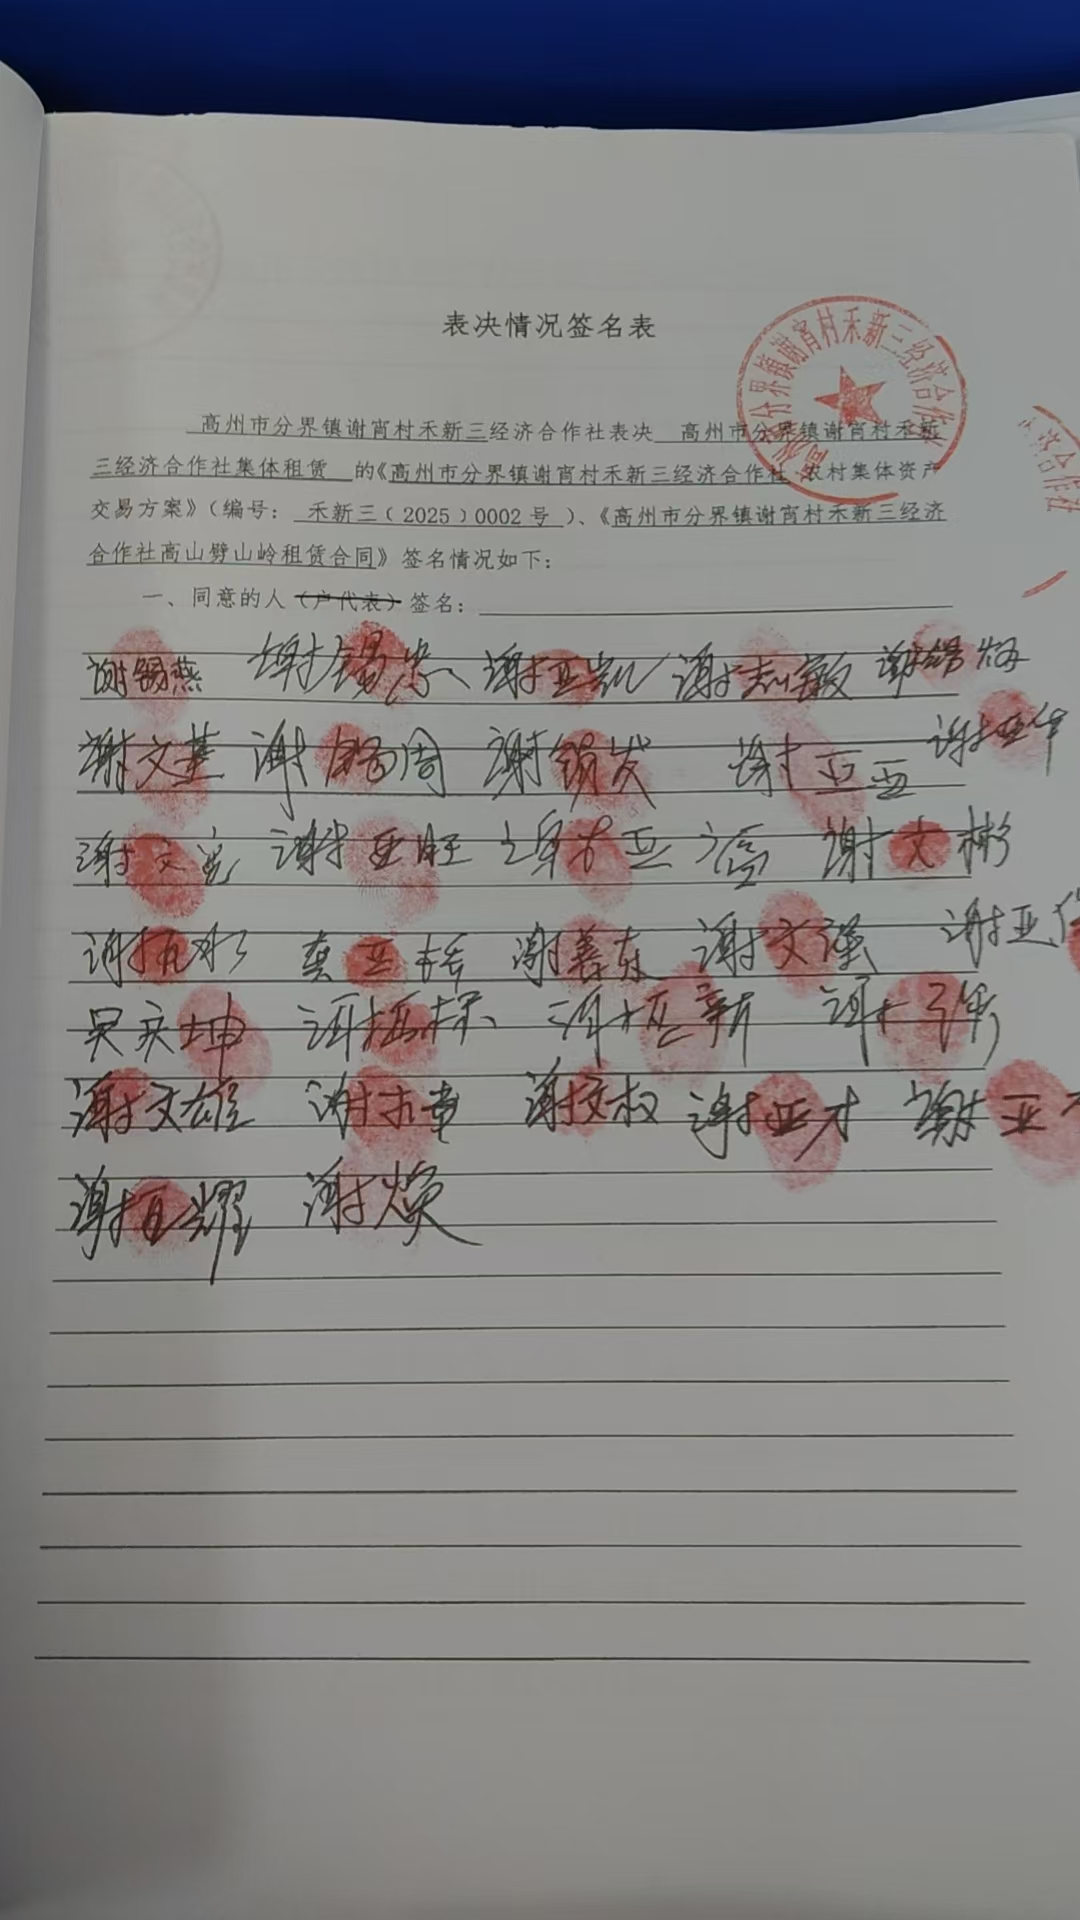 表决情况签名表
高州市分界镇谢宵村禾新三经济合作社表决 高州市分界镇谢宵村禾新
三经济合作社集体租赁 的《高州市分界镇谢宵村禾新三经济合作社 农村集体资产
交易方案》(编号: 禾新三(2025)0002号)、《高州市分界镇谢宵村禾新三经济
合作社高山劈山岭租赁合同》签名情况如下:
一、同意的人(户代表)签名:
谢锡燕 谢锡忠 谢亚凯 谢志敏 谢锡
谢文基 谢锡周 谢锡发 谢亚亚 谢亚华
谢文 谢亚旺 谢文彬
谢 亚 谢善东 谢文强 谢亚
吴庆坤 谢亚栋 谢亚新 谢
谢文雄 谢 章 谢文权 谢亚才 谢亚
谢亚耀 谢焕
分界镇谢宵村禾新三经济合作